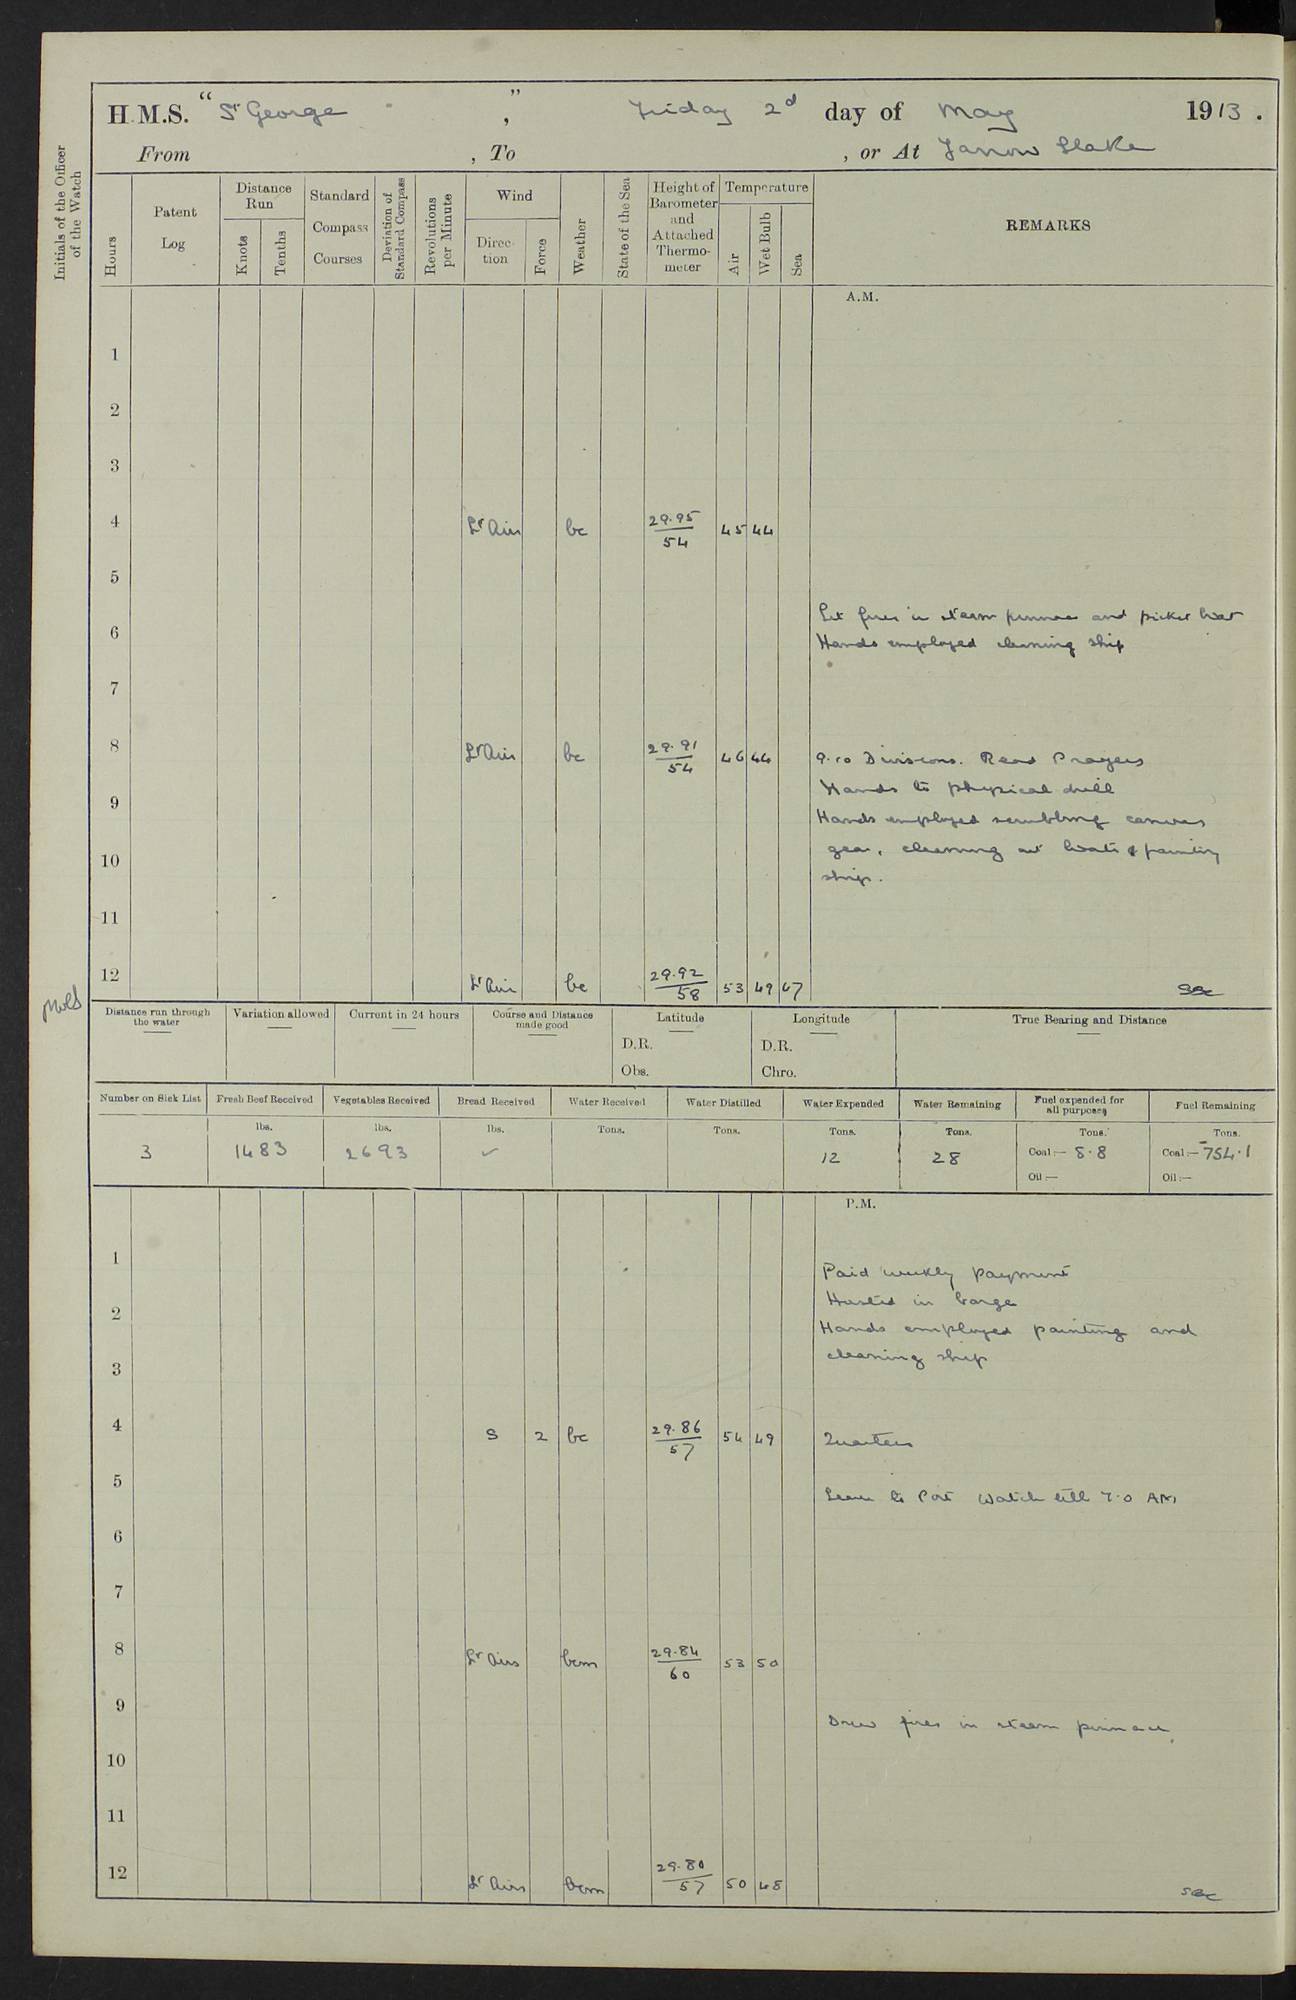 H.M.S. "St George", Friday 2d day of May 1913.
From , To , or At Jarrow Slake
Initials of the Officer of the Watch
Hours
Patent Log
Distance Run
Knots
Tenths
Standard Compass Courses
Deviation of Standard Compass
Revolutions per Minute
Wind
Direction
Force
Weather
State of the Sea
Height of Barometer and Attached Thermometer
Temperature
Air
Wet Bulb
Sea
REMARKS
A.M.
1
2
3
4 Lt Airs bc 29.95/54 45 44
5
Lit fires in steam pinnace and picket boat
6
Hands employed cleaning ship
7
8 Lt Airs bc 29.91/54 46 44 9.10 Divisions. Read Prayers
Hands to physical drill
9
Hands employed scrubbing canvas
gear, cleaning out boats & painting
10
ship.
11
12 Lt Airs bc 29.92/58 53 49 47
Distance run through the water
Variation allowed
Current in 24 hours
Course and Distance made good
Latitude
D.R.
Obs.
Longitude
D.R.
Chro.
True Bearing and Distance
Number on Sick List
3
Fresh Beef Received
lbs.
1483
Vegetables Received
lbs.
2693
Bread Received
lbs.
✓
Water Received
Tons.
Water Distilled
Tons.
Water Expended
Tons.
12
Water Remaining
Tons.
28
Fuel expended for all purposes
Tons.
Coal:— 5.8
Oil:—
Fuel Remaining
Tons.
Coal:— 754.1
Oil:—
P.M.
1
Paid weekly payment
Hoisted in barge
2
Hands employed painting and
cleaning ship
3
4 S 2 bc 29.86/57 54 49 Quarters
5
Leave to Port Watch till 7.0 AM
6
7
8 Lt Airs bcm 29.84/60 53 50
9
Drew fires in steam pinnace
10
11
12 Lt Airs bcm 29.80/57 50 48